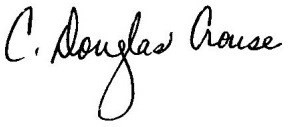 C. Douglas Crouse